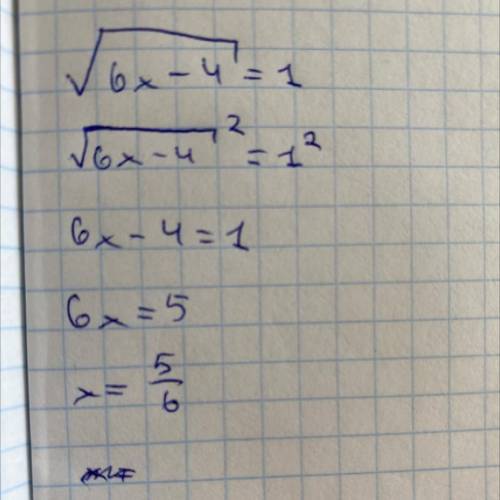 √(6x-4) = 1
√(6x-4)² = 1²
6x - 4 = 1
6x = 5
x = 5/6